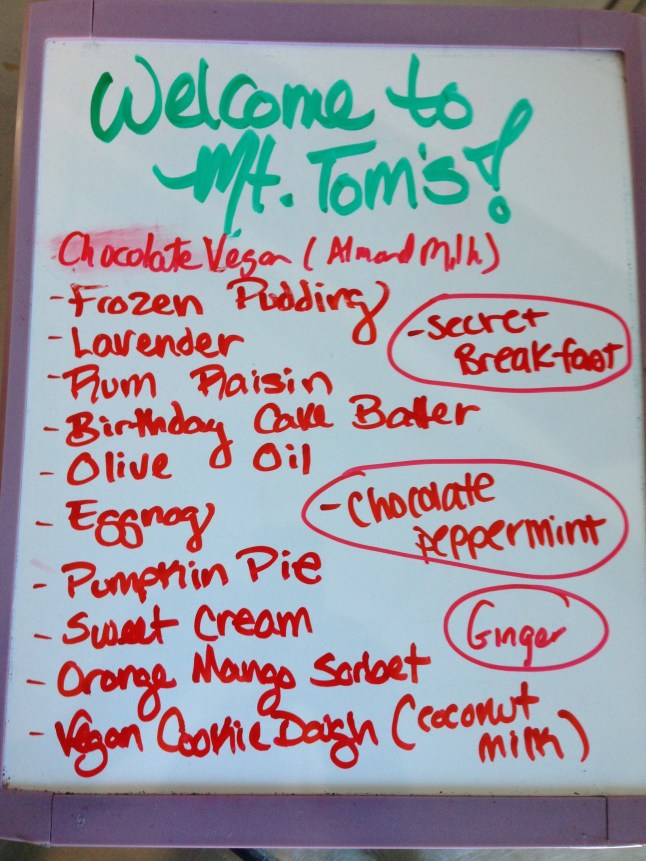 Welcome to
Mt. Tom's!
Chocolate Vegan (Almond Milk)
- Frozen Pudding
- Lavender
- Secret
Breakfast
- Rum Raisin
- Birthday Cake Batter
- Olive Oil
- Eggnog
- Chocolate
Peppermint
- Pumpkin Pie
- Sweet Cream
Ginger
- Orange Mango Sorbet
- Vegan Cookie Dough (coconut
milk)